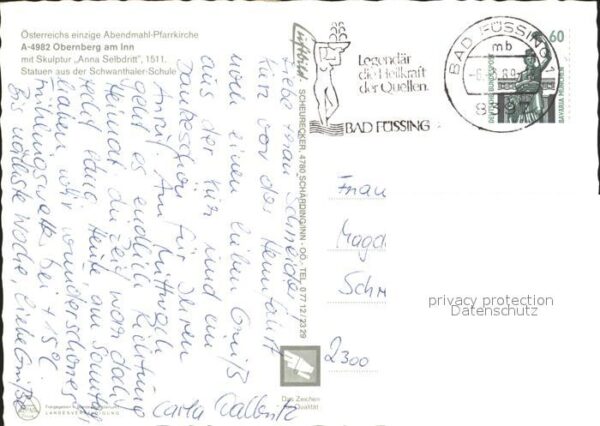 Österreichs einzige Abendmahl-Pfarrkirche
A-4982 Obernberg am Inn
mit Skulptur „Anna Selbdritt", 1511.
Statuen aus der Schwanthaler-Schule
Liebe Frau Schneider!
Kurz vor der Heimfahrt
noch einen lieben Gruß
aus der Kur und ein
Dankeschön für Ihren
Anruf. Am Mittwoch
geht es endlich Richtung
Heimat, die Zeit war doch
sehr lang. Heute, am Samstag
haben wir wunderschönes
Frühlingswetter bei +15°C.
Bis nächste Woche, liebe Grüße
Carla
Luftbild
SCHEURECKER, 4780 SCHÄRDING/INN - OÖ. - TEL. 0 77 12 / 23 29
Das Zeichen
für Qualität
LANDESVERTEIDIGUNG
Legendär
die Heilkraft
der Quellen.
BAD FÜSSING
BAD FÜSSING 1
mb
8397
60
DEUTSCHE BUNDESPOST
BAVARIA MÜNCHEN
Frau
Magd
Schn
2300
privacy protection
Datenschutz